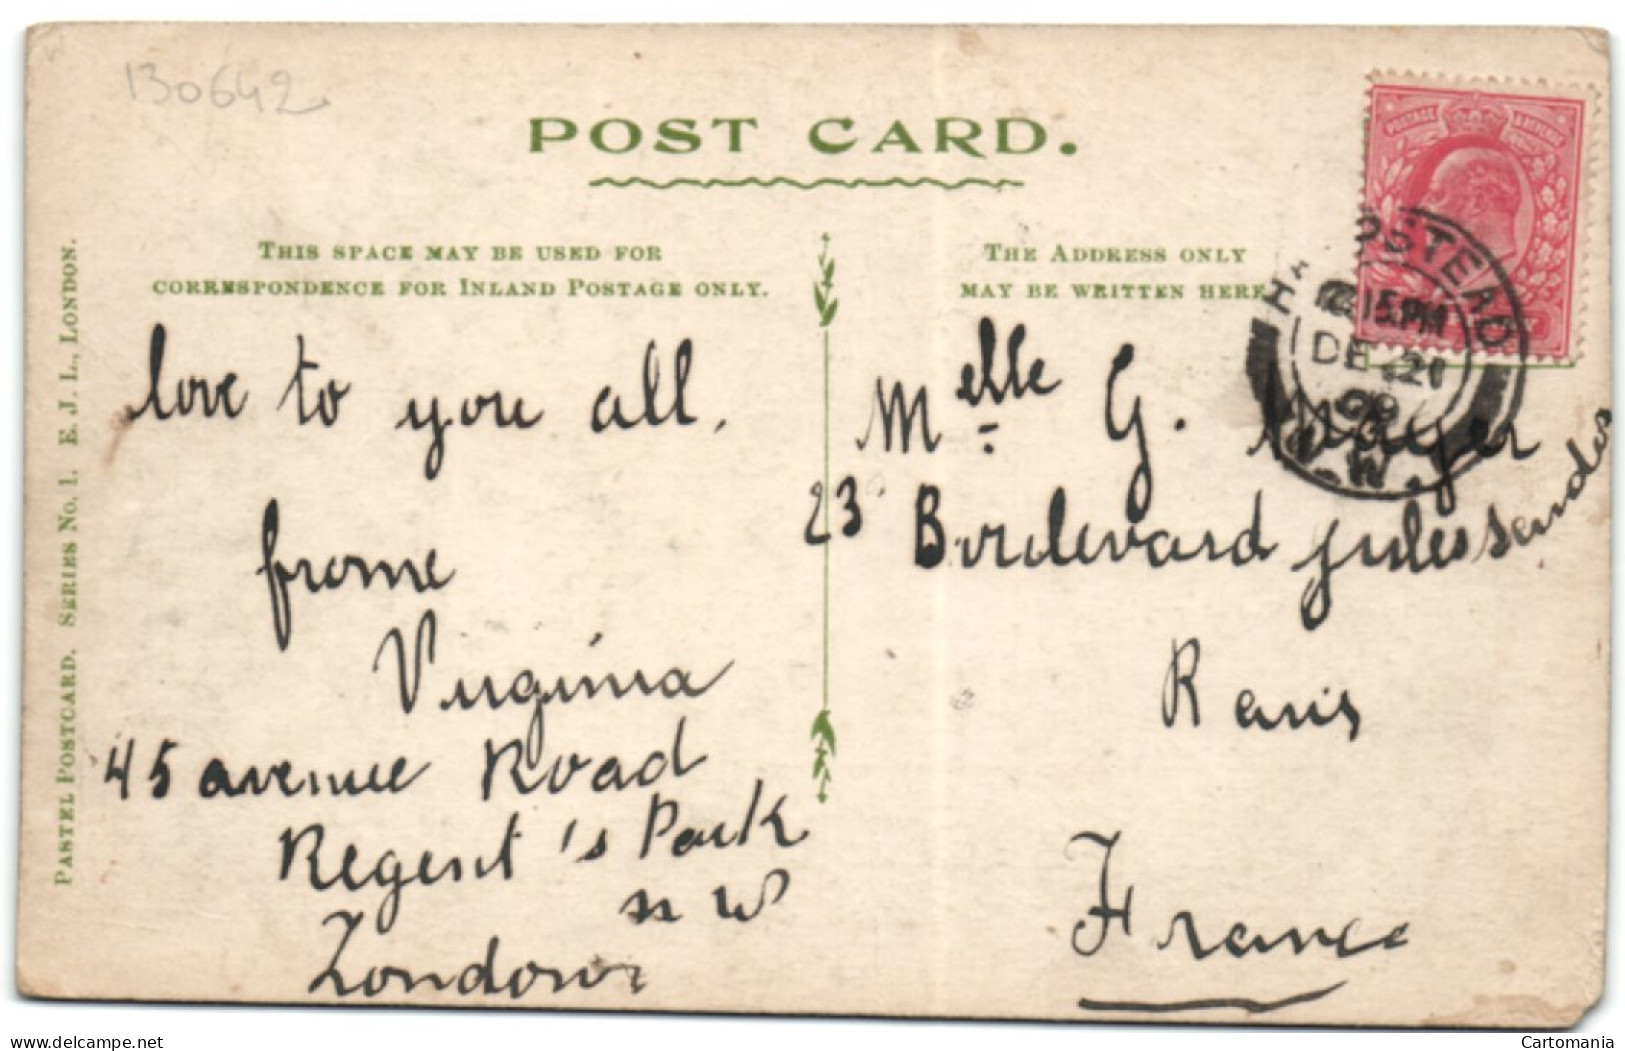 130642
POST CARD.
THIS SPACE MAY BE USED FOR
CORRESPONDENCE FOR INLAND POSTAGE ONLY.
THE ADDRESS ONLY
MAY BE WRITTEN HERE
PASTEL POSTCARD. SERIES No. 1. E. J. L., LONDON.
POSTAGE & REVENUE
15 PM
DE 21
09
N.W.
love to you all,
frome
Virginia
45 avenue Road
Regent's Park
n W
London
Melle G.
23 Boulevard jules Sandes
France
delcampe.net
Cartomania